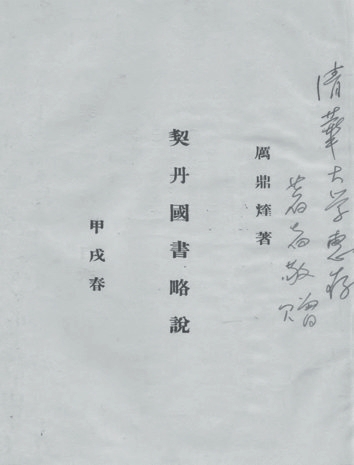 清華大学惠存
著者敬贈
厲鼎煃著
契丹國書略說
甲戌春